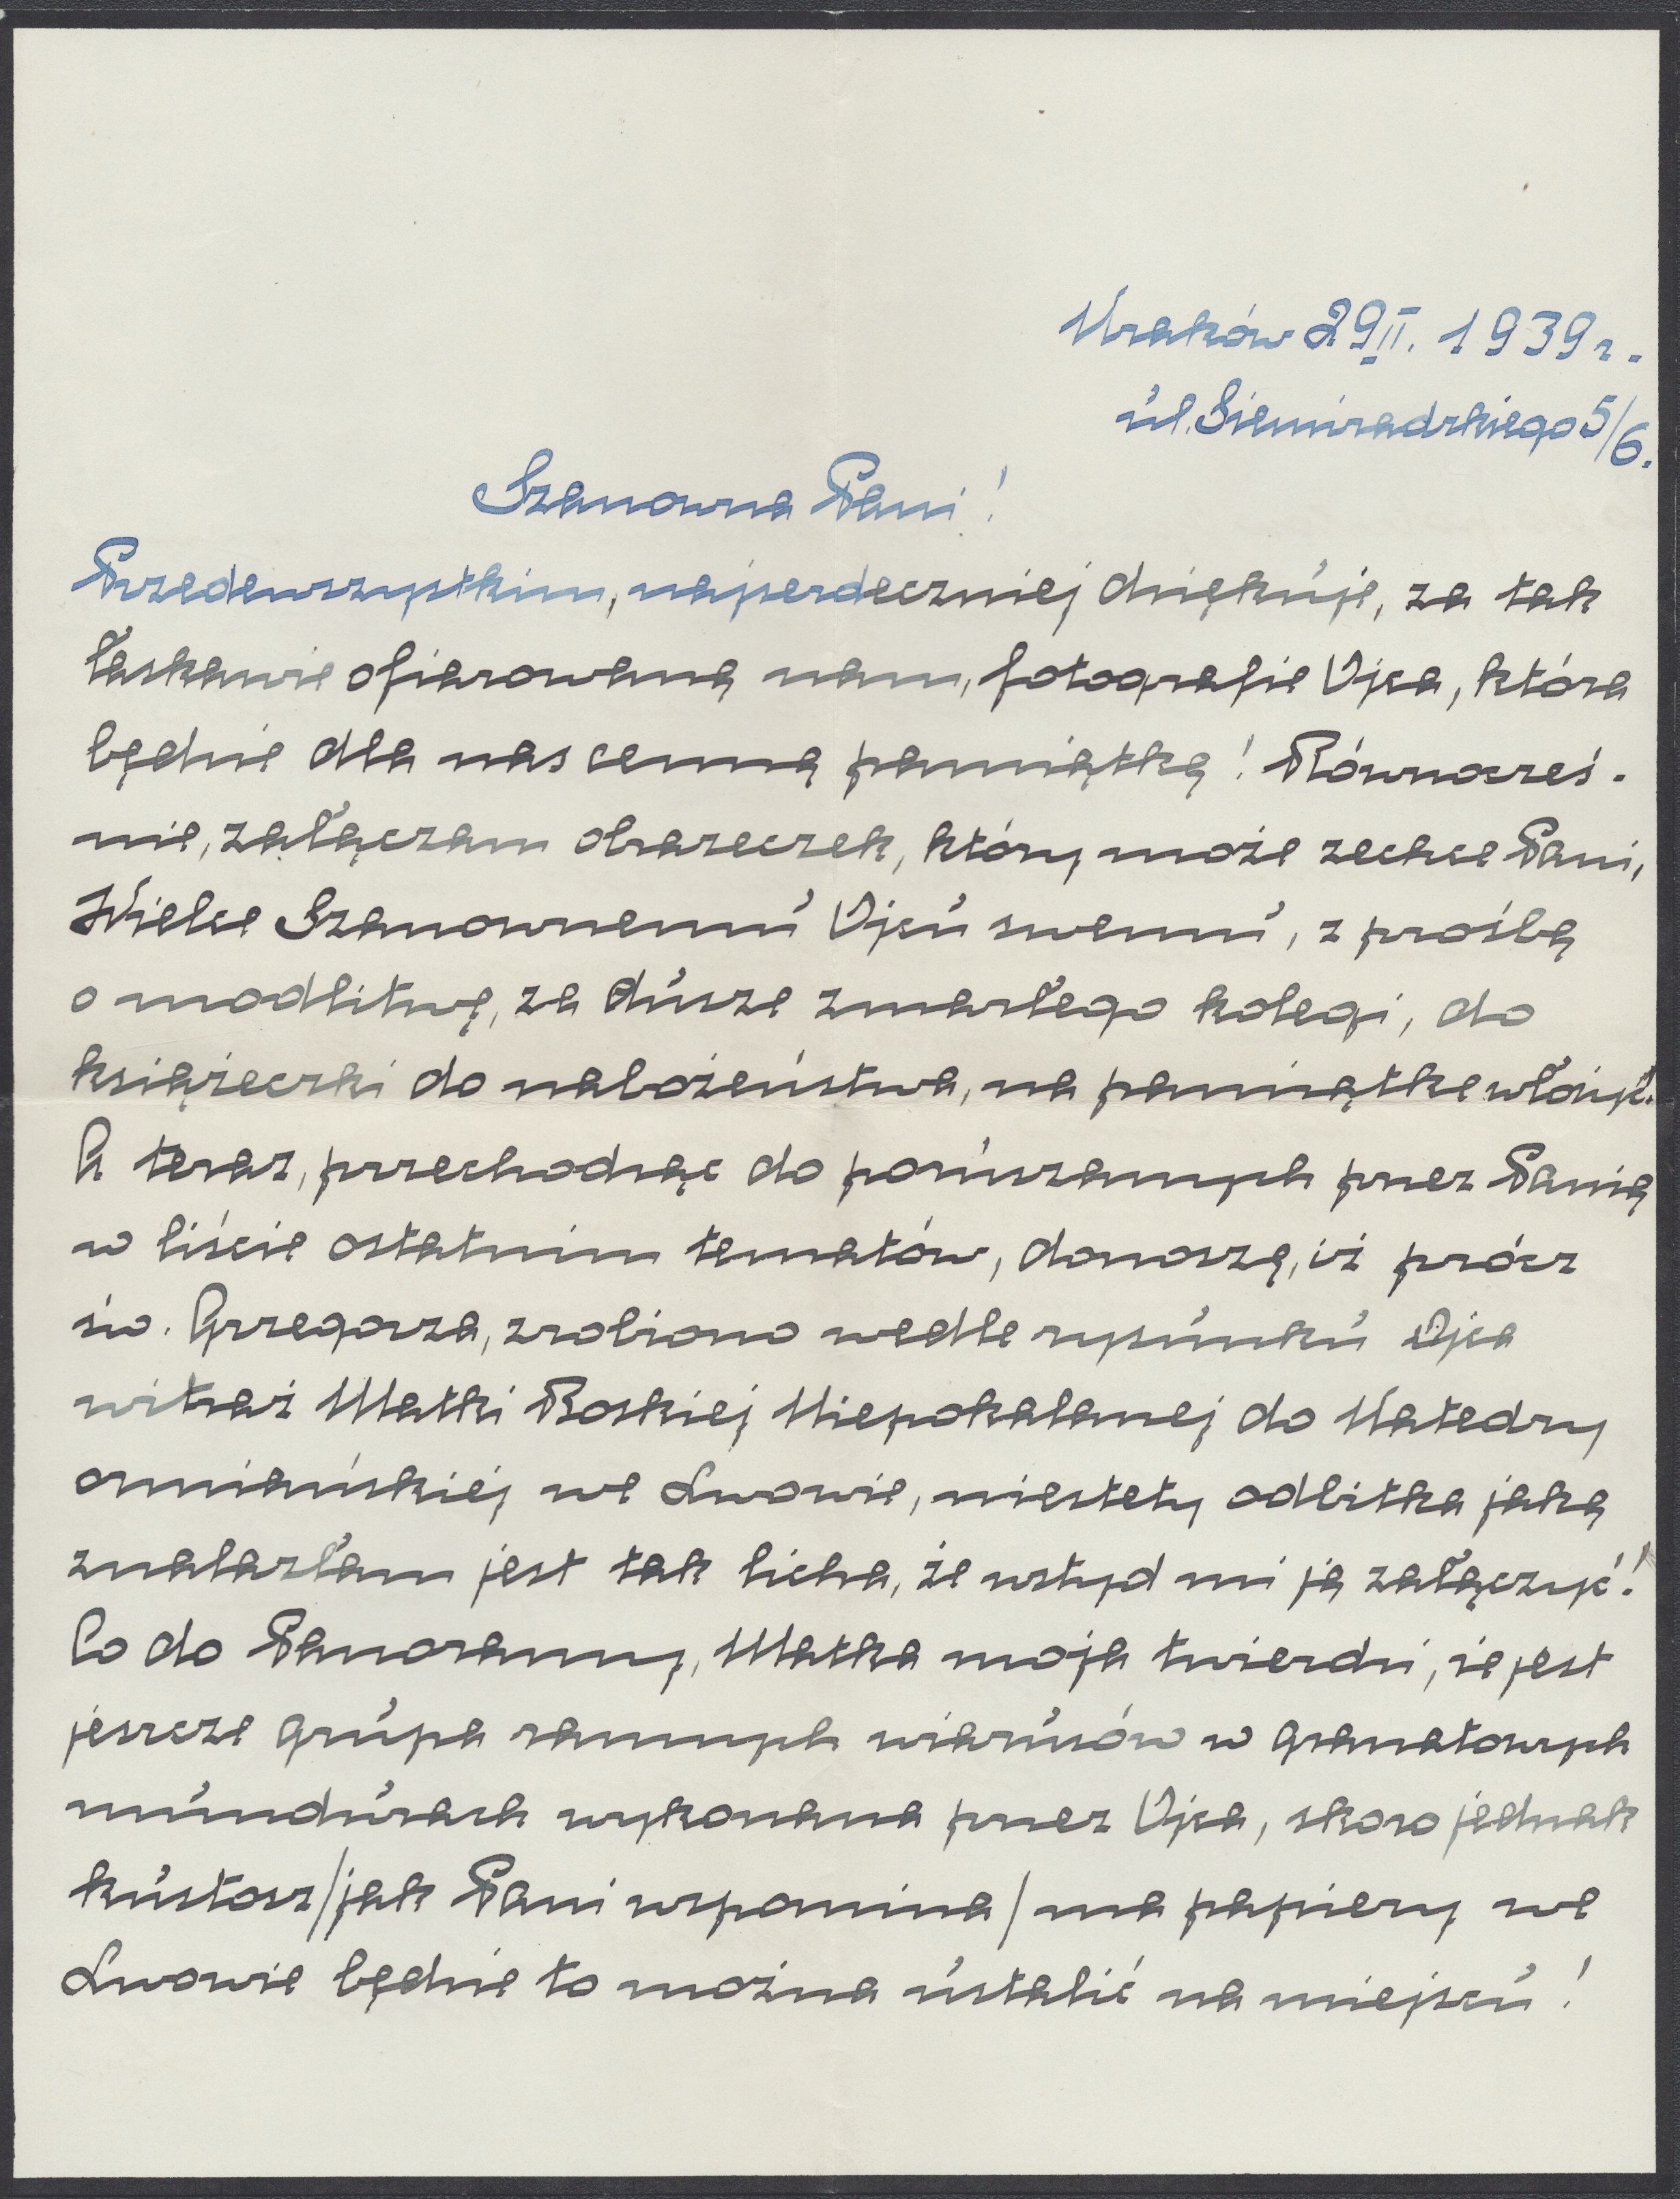 Kraków 29 II. 1939 r.
ul. Siemiradzkiego 5/6.
Szanowna Pani!
Przedewszystkim, najserdeczniej dziękuję, za tak
łaskawie ofiarowaną nam, fotografie Ojca, która
będzie dla nas cenną pamiątką! Równocześ-
nie, załączam obrazeczek, który może zechce Pani,
Wielce Szanownemu Ojcu swemu, z prośbą
o modlitwę, za dusze zmarłego kolegi, do
książeczki do nabożeństwa, na pamiątke włożyć!
A teraz, przechodząc do poruszanych przez Panią
w liście ostatnim tematów, donoszę, iż prócz
św. Grzegorza, zrobiono wedle rysunku Ojca
witraż Matki Boskiej Niepokalanej do Katedry
ormiańskiej we Lwowie, niestety odbitka jaką
znalazłam jest tak licha, że wstyd mi ją załączyć!
Co do Panoramy, Matka moja twierdzi, że jest
jeszcze grupa rannych wiarusów w granatowych
mundurach wykonana przez Ojca, skoro jednak
kustosz /jak Pani wspomina/ ma papiery we
Lwowie będzie to można ustalić na miejscu!